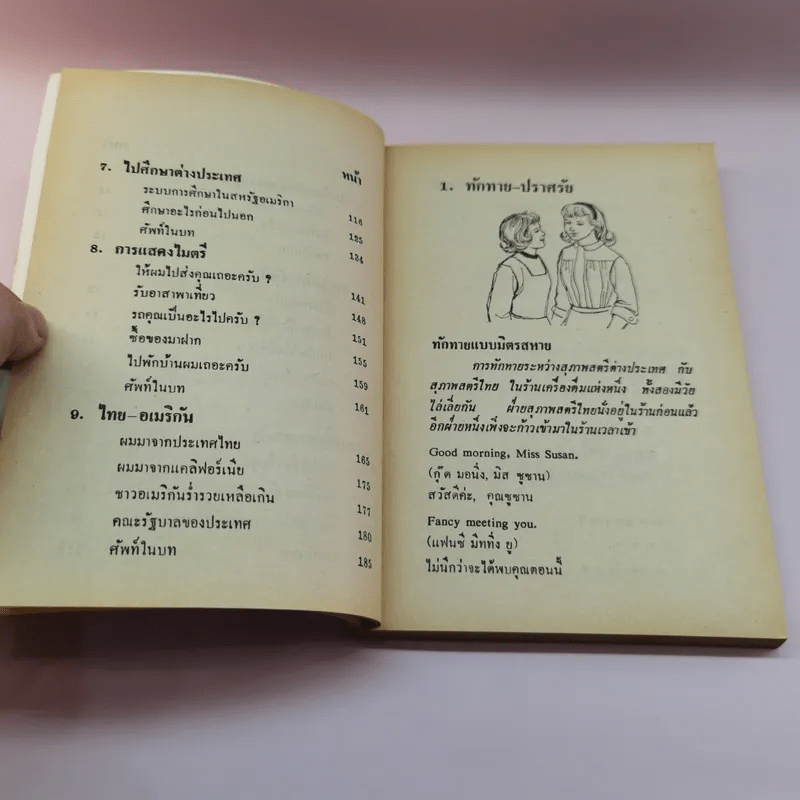 หน้า
7. ไปศึกษาต่างประเทศ
ระบบการศึกษาในสหรัฐอเมริกา 116
ศึกษาอะไรก่อนไปนอก 125
ศัพท์ในบท 134
8. การแสดงไมตรี
ให้ผมไปส่งคุณเถอะครับ ? 141
รับอาสาพาเที่ยว 148
รถคุณเป็นอะไรไปครับ ? 151
ซื้อของมาฝาก 155
ไปพักบ้านผมเถอะครับ 159
ศัพท์ในบท 161
9. ไทย-อเมริกัน
ผมมาจากประเทศไทย 165
ผมมาจากแคลิฟอร์เนีย 175
ชาวอเมริกันร่ำรวยเหลือเกิน 177
คณะรัฐบาลของประเทศ 180
ศัพท์ในบท 185
1. ทักทาย-ปราศรัย
ทักทายแบบมิตรสหาย
การทักทายระหว่างสุภาพสตรีต่างประเทศ กับ
สุภาพสตรีไทย ในร้านเครื่องดื่มแห่งหนึ่ง ทั้งสองมีวัย
ไล่เลี่ยกัน ฝ่ายสุภาพสตรีไทยนั่งอยู่ในร้านก่อนแล้ว
อีกฝ่ายหนึ่งเพิ่งจะก้าวเข้ามาในร้านเวลาเช้า
Good morning, Miss Susan.
(กุ๊ด มอนิ่ง, มิส ซูซาน)
สวัสดีค่ะ, คุณซูซาน
Fancy meeting you.
(แฟนซี มิททิ่ง ยู)
ไม่นึกว่าจะได้พบคุณตอนนี้